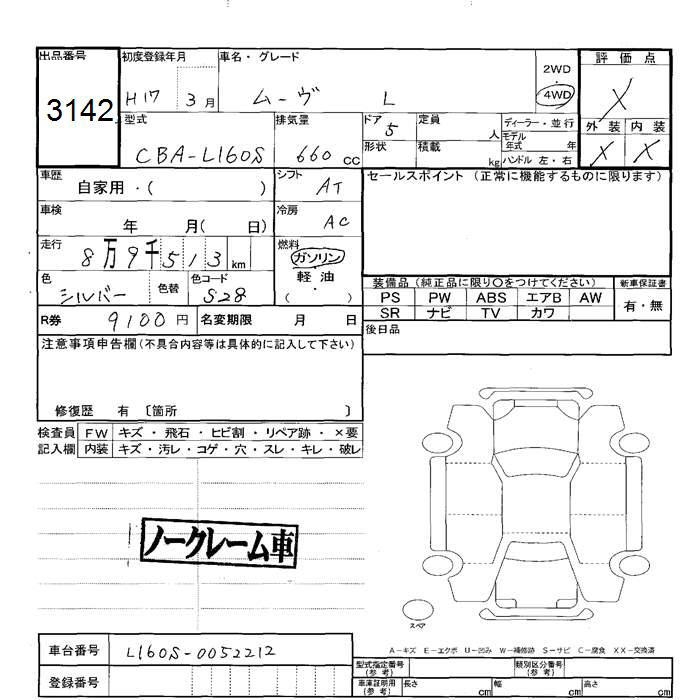 出品番号
3142
初度登録年月
H17 3月
車名・グレード
ムーヴ L
2WD
4WD
評価点
X
型式
CBA-L160S
排気量
660 cc
ドア
5
定員
人
ディーラー・並行
モデル年式 年
外装 内装
X X
形状
積載
kg
ハンドル 左・右
車歴
自家用・( )
シフト
AT
セールスポイント (正常に機能するものに限ります)
車検
年 月( 日)
冷房
AC
走行
8万9千513 km
燃料
ガソリン
軽油
・( )
色
シルバー
色替
色コード
S28
装備品 (純正品に限り○をつけてください)
新車保証書
PS PW ABS エアB AW
有・無
SR ナビ TV カワ
R券
9100 円
名変期限 月 日
後日品
注意事項申告欄(不具合内容等は具体的に記入して下さい)
修復歴 有 〔箇所 〕
検査員 FW キズ・飛石・ヒビ割・リペア跡・×要
記入欄 内装 キズ・汚レ・コゲ・穴・スレ・キレ・破レ
ノークレーム車
スペア
A-キズ E-エクボ U-凹み W-補修跡 S-サビ C-腐食 XX-交換済
車台番号
L160S-0052212
登録番号
型式指定番号
(参考)
類別区分番号
(参考)
車庫証明用
(参考)
長さ cm
幅 cm
高さ cm